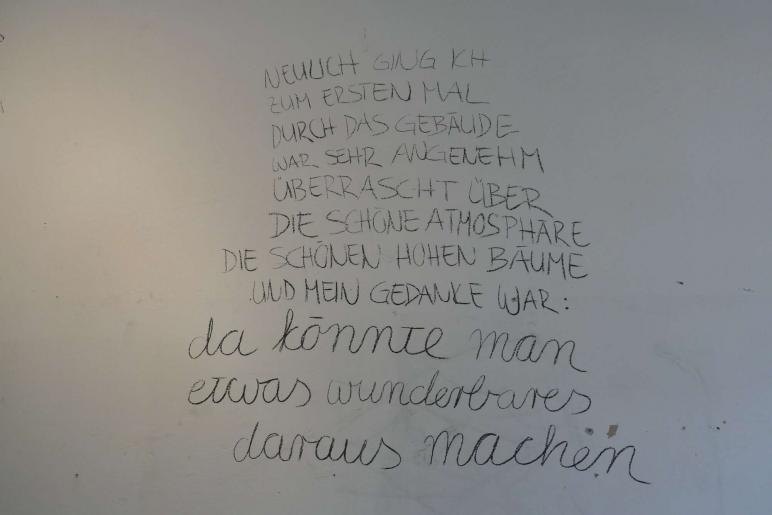 NEULICH GING ICH
ZUM ERSTEN MAL
DURCH DAS GEBÄUDE
WAR SEHR ANGENEHM
ÜBERRASCHT ÜBER
DIE SCHÖNE ATMOSPHÄRE
DIE SCHÖNEN HOHEN BÄUME
UND MEIN GEDANKE WAR:
da könnte man
etwas wunderbares
daraus machen